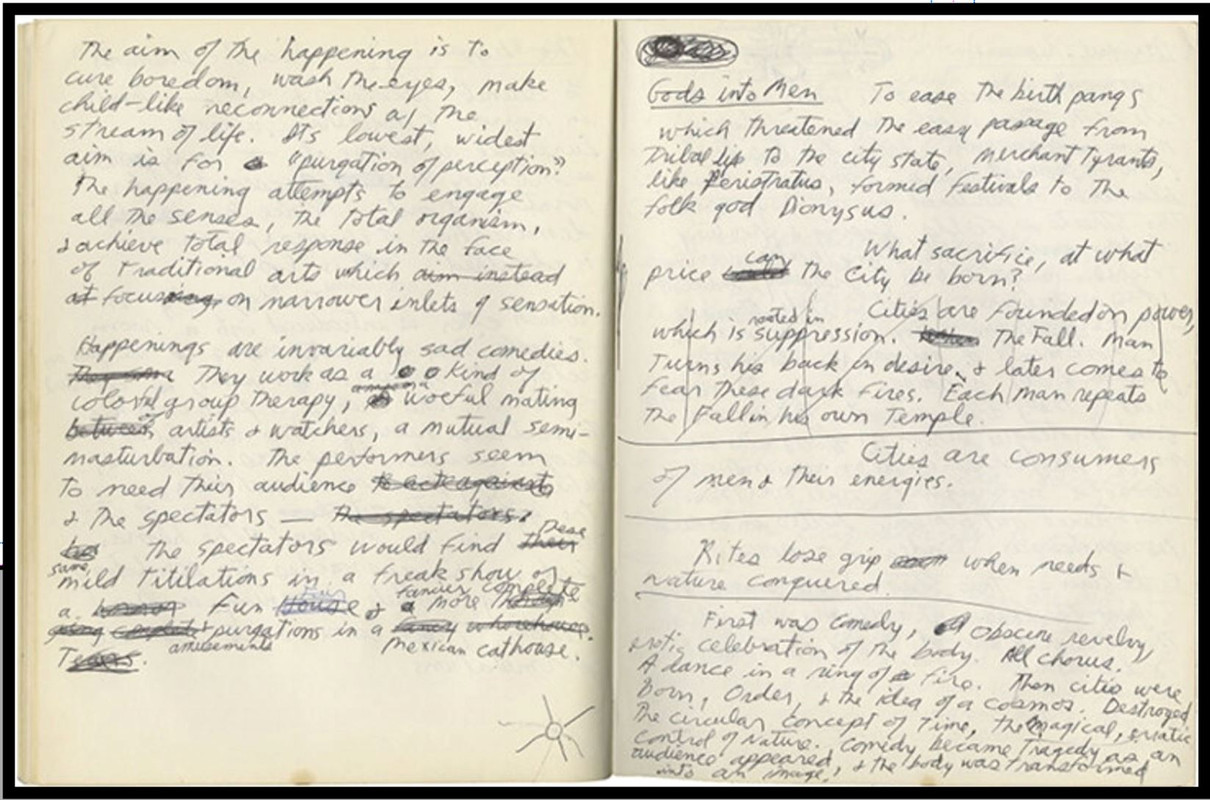 The aim of the happening is to
cure boredom, wash the eyes, make
child-like reconnections w/ the
stream of life. Its lowest, widest
aim is for "purgation of perception."
The happening attempts to engage
all the senses, the total organism,
& achieve total response in the face
of traditional arts which aim instead
at focusing on narrower inlets of sensation.
Happenings are invariably sad comedies.
They work as a kind of
colorful group therapy, a woeful mating
between of artists & watchers, a mutual semi-
masturbation. The performers seem
to need their audience to act against
& the spectators — The spectators.
The spectators would find their these
same mild titilations in a freak show or
a Fun House Fun & fancier more complete
amusements purgations in a fancy whorehouse.
Mexican cathouse.
Gods into Men To ease the birth pangs
which threatened the easy passage from
Tribal life to the city state, Merchant Tyrants,
like Peristratus, formed festivals to the
folk god Dionysus.
What sacrifice, at what
price can the City be born?
Cities are founded on power,
which is rooted in suppression. The Fall. Man
Turns his back in desire, & later comes to
fear these dark fires. Each man repeats
the Fall in his own Temple.
Cities are consumers
of men & their energies.
Rites lose grip when needs &
nature conquered.
First was comedy, obscene revelry,
erotic celebration of the body. All chorus.
A dance in a ring of fire. Then cities were
Born, Order, & the idea of a cosmos. Destroyed
The circular concept of Time, the magical,
control of Nature. Comedy became Tragedy as an
audience appeared, & the body was transformed
into an image,